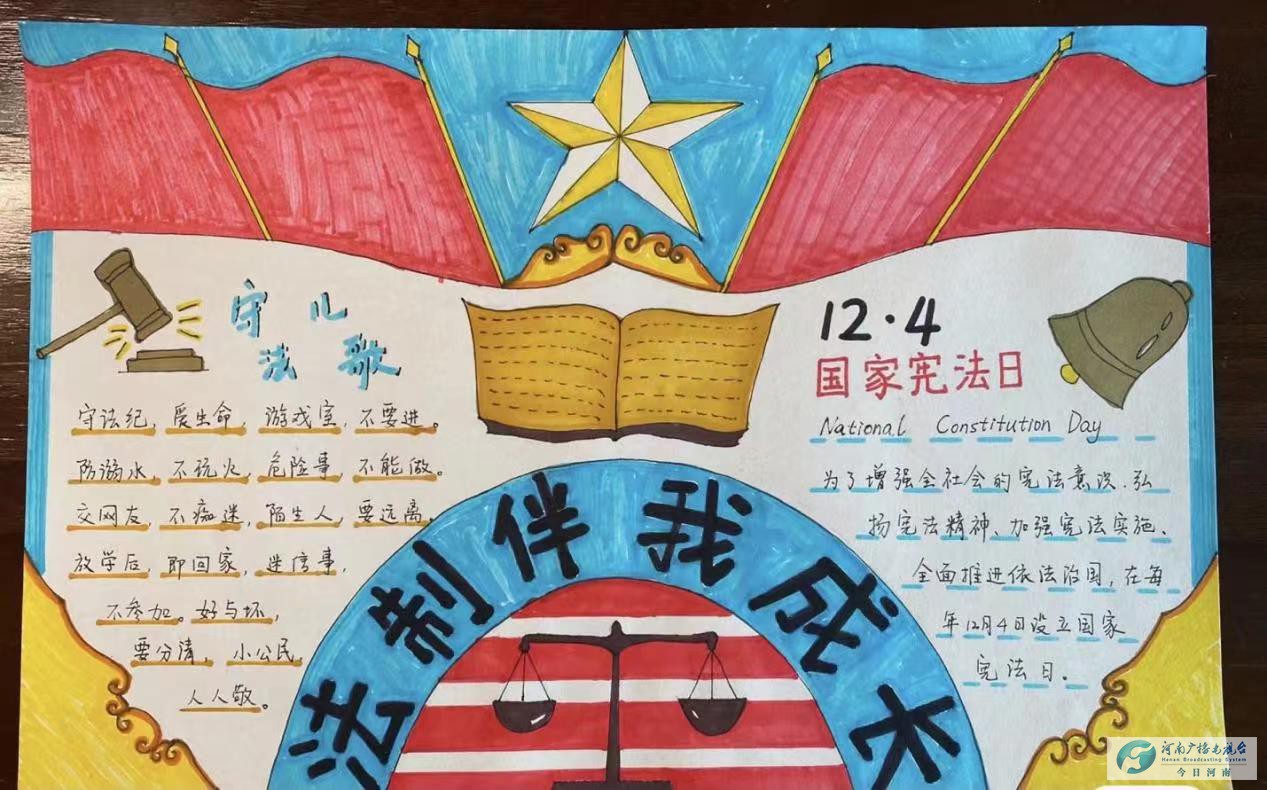 守法儿歌
守法纪，爱生命，游戏室，不要进。
防溺水，不玩火，危险事，不能做。
交网友，不痴迷，陌生人，要远离，
放学后，即回家，迷信事，
不参加。好与坏，
要分清，小公民，
人人敬。
12·4
国家宪法日
National Constitution Day
为了增强全社会的宪法意识、弘
扬宪法精神、加强宪法实施、
全面推进依法治国，在每
年12月4日设立国家
宪法日。
法制伴我成长
河南广播电视台
Henan Broadcasting System
今日河南